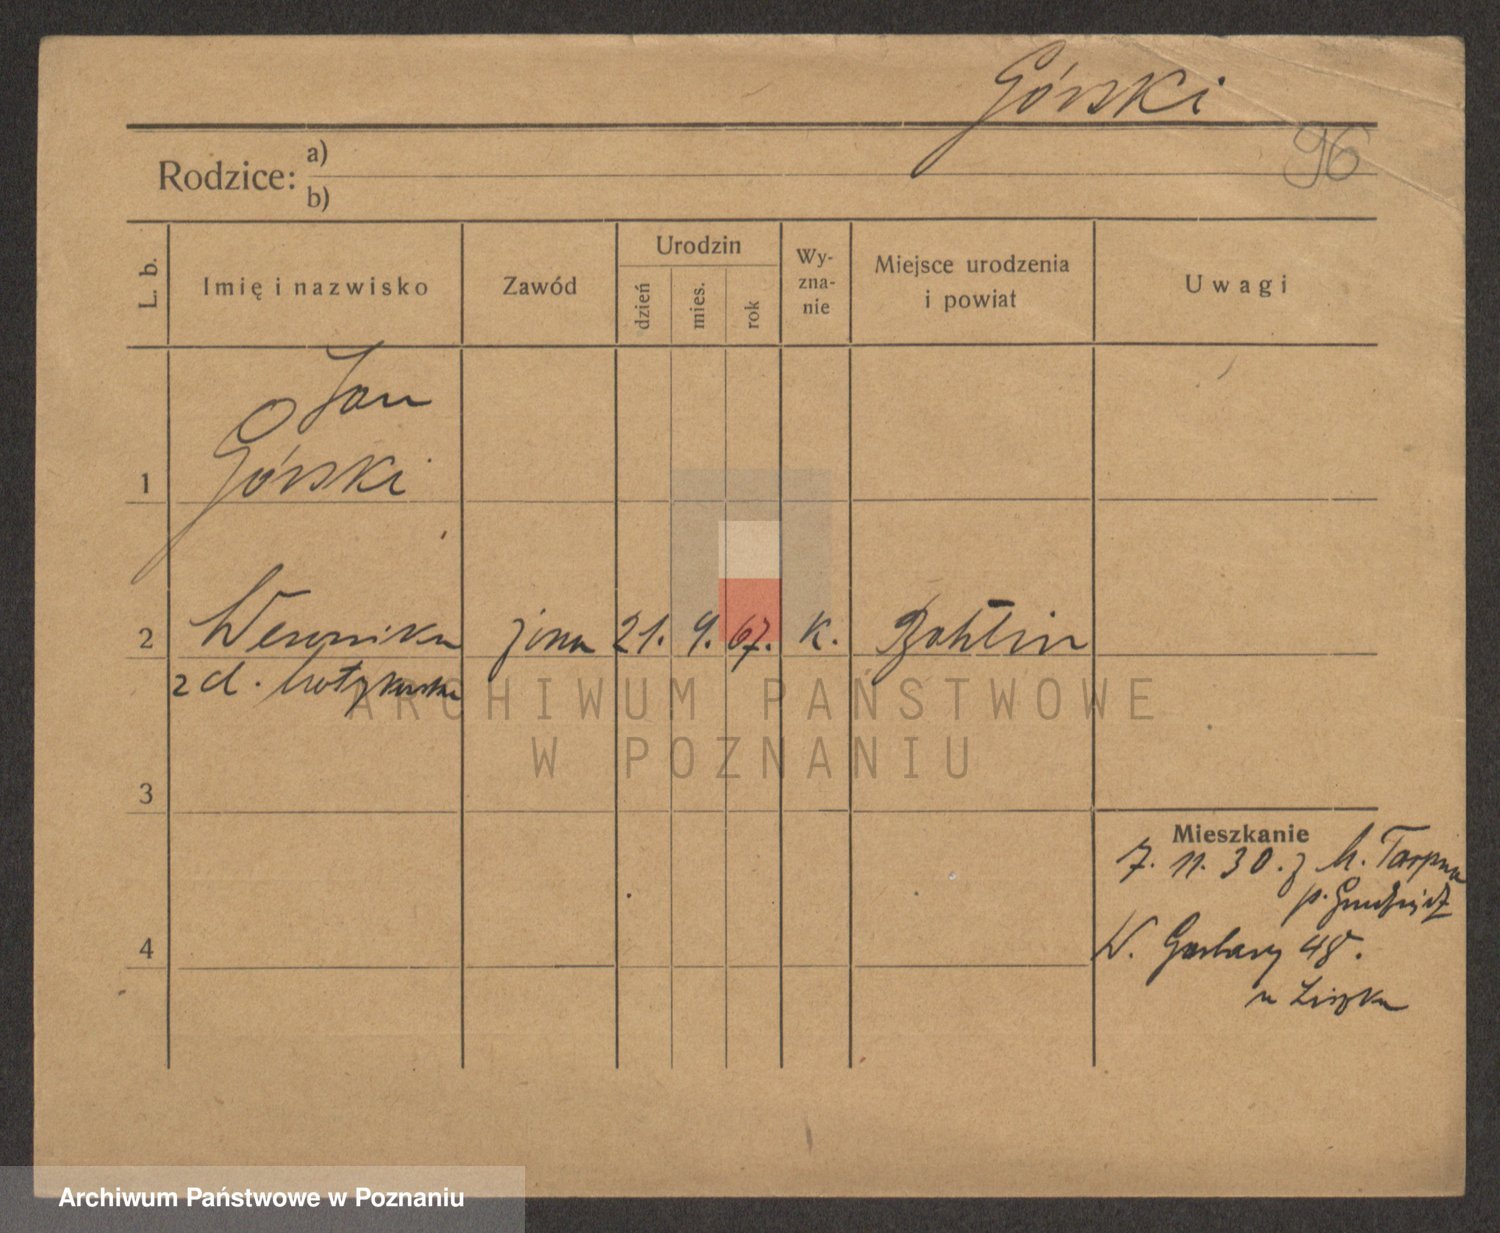 Górski
96
Rodzice: a)
b)
L. b.
Imię i nazwisko
Zawód
Urodzin
dzień
mies.
rok
Wy-
zna-
nie
Miejsce urodzenia
i powiat
Uwagi
Jan
1 Górski
2 Weronika żona 21. 9. 67. k.
z d.
3
4
Mieszkanie
7. 11. 30. z M. Tarpna
p. Grudziądz
W. Garbary 48.
u
ARCHIWUM PAŃSTWOWE
W POZNANIU
Archiwum Państwowe w Poznaniu